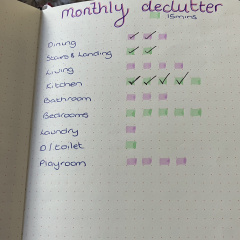 monthly declutter
15mins
Dining
Stairs & Landing
Living
Kitchen
Bathroom
Bedrooms
Laundry
D/toilet
Playroom